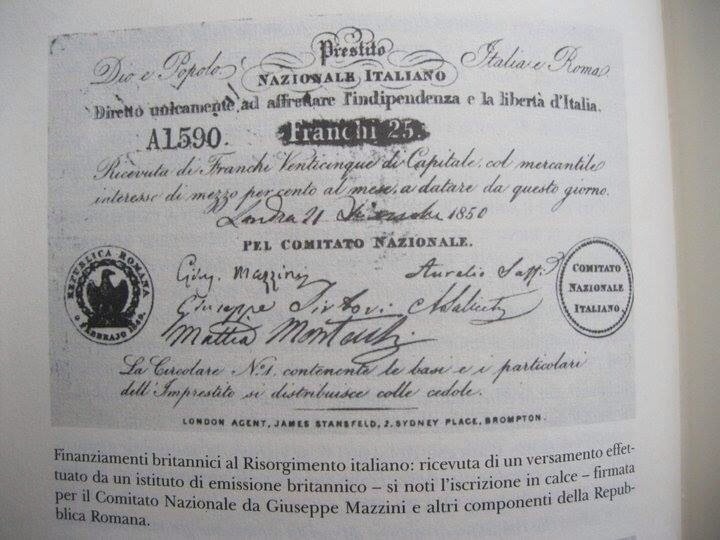 Prestito
Dio e Popolo. Italia e Roma.
NAZIONALE ITALIANO
Diretto unicamente ad affrettare l'indipendenza e la libertà d'Italia.
A1590. Franchi 25.
Ricevuta di Franchi Venticinque di Capitale, col mercantile
interesse di mezzo per cento al mese, a datare da questo giorno.
Londra 21 1850
PEL COMITATO NAZIONALE.
REPUBBLICA ROMANA
9 FEBBRAJO 1849.
Mazzini Aurelio Saffi
Giuseppe Sirtori
Mattia
COMITATO
NAZIONALE
ITALIANO.
La Circolare No. 1, contenente le basi e i particolari
dell'Imprestito si distribuisce colle cedole.
LONDON AGENT, JAMES STANSFELD, 2. SYDNEY PLACE, BROMPTON.
Finanziamenti britannici al Risorgimento italiano: ricevuta di un versamento effet-
tuato da un istituto di emissione britannico – si noti l'iscrizione in calce – firmata
per il Comitato Nazionale da Giuseppe Mazzini e altri componenti della Repub-
blica Romana.